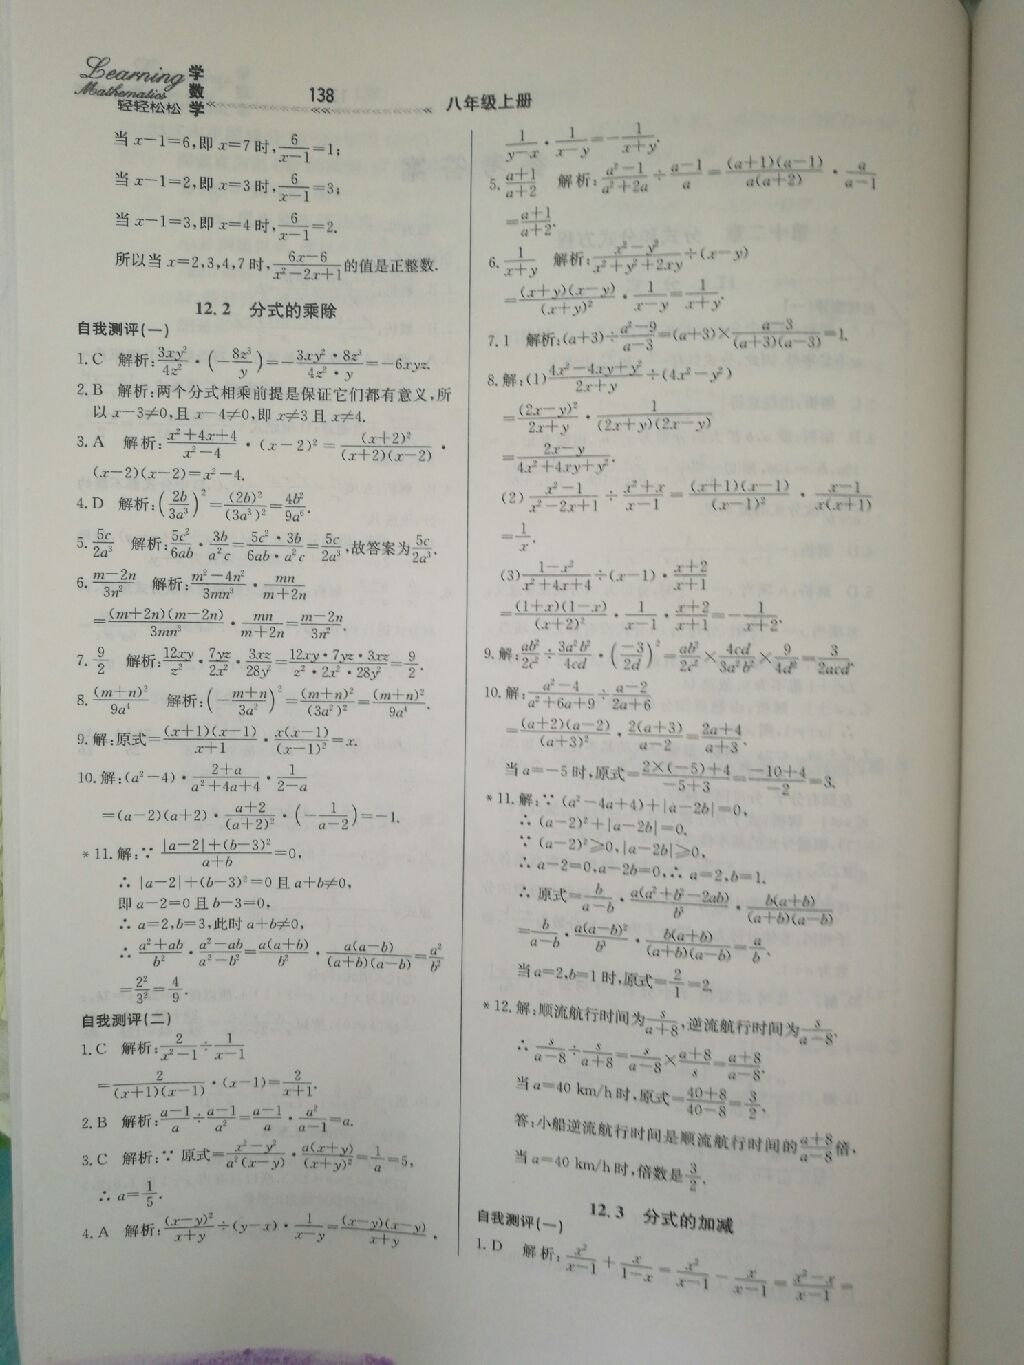 Learning
Mathematics
学数学
轻轻松松
138
八年级上册
当 x−1=6,即 x=7 时,6/(x−1)=1;
当 x−1=2,即 x=3 时,6/(x−1)=3;
当 x−1=3,即 x=4 时,6/(x−1)=2.
所以当 x=2,3,4,7 时,(6x−6)/(x²−2x+1)的值是正整数.
12.2 分式的乘除
自我测评(一)
1.C 解析:3xy²/4z²·(−8z³/y)=−(3xy²·8z³)/(4z²·y)=−6xyz.
2.B 解析:两个分式相乘前提是保证它们都有意义,所
以 x−3≠0,且 x−4≠0,即 x≠3 且 x≠4.
3.A 解析:(x²+4x+4)/(x²−4)·(x−2)²=(x+2)²/((x+2)(x−2))·
(x−2)(x−2)=x²−4.
4.D 解析:(2b/3a³)²=(2b)²/(3a³)²=4b²/9a⁶.
5.5c/2a³ 解析:5c²/6ab·3b/a²c=(5c²·3b)/(6ab·a²c)=5c/2a³,故答案为5c/2a³.
6.(m−2n)/3n² 解析:(m²−4n²)/3mn³·mn/(m+2n)
=(m+2n)(m−2n)/3mn³·mn/(m+2n)=(m−2n)/3n².
7.9/2 解析:12xy/z²·7yz/2x²·3xz/28y²=(12xy·7yz·3xz)/(z²·2x²·28y²)=9/2.
8.(m+n)²/9a⁴ 解析:(−(m+n)/3a²)²=(m+n)²/(3a²)²=(m+n)²/9a⁴.
9.解:原式=(x+1)(x−1)/(x+1)·x(x−1)/(x−1)²=x.
10.解:(a²−4)·(2+a)/(a²+4a+4)·1/(2−a)
=(a−2)(a+2)·(a+2)/(a+2)²·(−1/(a−2))=−1.
*11.解:∵ (|a−2|+(b−3)²)/(a+b)=0,
∴ |a−2|+(b−3)²=0 且 a+b≠0,
即 a−2=0 且 b−3=0,
∴ a=2,b=3,此时 a+b≠0,
∴ (a²+ab)/b²·(a²−ab)/(a²−b²)=a(a+b)/b²·a(a−b)/((a+b)(a−b))=a²/b²
=2²/3²=4/9.
自我测评(二)
1.C 解析:2/(x²−1)÷1/(x−1)
=2/((x+1)(x−1))·(x−1)=2/(x+1).
2.B 解析:(a−1)/a÷(a−1)/a²=(a−1)/a·a²/(a−1)=a.
3.C 解析:∵ 原式=(x²−y²)/(a²(x−y))·a(x+y)/(x+y)²=1/a=5,
∴ a=1/5.
4.A 解析:(x−y)²/(x+y)÷(y−x)·1/(x−y)=(x−y)(x−y)/(x+y)·
1/(y−x)·1/(x−y)=−1/(x+y).
5.(a+1)/(a+2) 解析:(a²−1)/(a²+2a)÷(a−1)/a=(a+1)(a−1)/(a(a+2))·a/(a−1)
=(a+1)/(a+2).
6.1/(x+y) 解析:(x²−y²)/(x²+y²+2xy)÷(x−y)
=(x+y)(x−y)/(x+y)²·1/(x−y)=1/(x+y).
7.1 解析:(a+3)÷(a²−9)/(a−3)=(a+3)×(a−3)/((a+3)(a−3))=1.
8.解:(1)(4x²−4xy+y²)/(2x+y)÷(4x²−y²)
=(2x−y)²/(2x+y)·1/((2x+y)(2x−y))
=(2x−y)/(4x²+4xy+y²).
(2)(x²−1)/(x²−2x+1)÷(x²+x)/(x−1)=(x+1)(x−1)/(x−1)²·(x−1)/(x(x+1))
=1/x.
(3)(1−x²)/(x²+4x+4)÷(x−1)·(x+2)/(x+1)
=(1+x)(1−x)/(x+2)²·1/(x−1)·(x+2)/(x+1)=−1/(x+2).
9.解:ab²/2c²÷3a²b²/4cd·(−3/2d)²=ab²/2c²×4cd/3a²b²×9/4d²=3/2acd.
10.解:(a²−4)/(a²+6a+9)÷(a−2)/(2a+6)
=(a+2)(a−2)/(a+3)²·2(a+3)/(a−2)=(2a+4)/(a+3).
当 a=−5 时,原式=(2×(−5)+4)/(−5+3)=(−10+4)/(−2)=3.
*11.解:∵ (a²−4a+4)+|a−2b|=0,
∴ (a−2)²+|a−2b|=0.
∵ (a−2)²≥0,|a−2b|≥0,
∴ a−2=0,a−2b=0,∴ a=2,b=1.
∴ 原式=b/(a−b)·a(a²+b²−2ab)/b³·b(a+b)/((a+b)(a−b))
=b/(a−b)·a(a−b)²/b³·b(a+b)/((a+b)(a−b))=a/b.
当 a=2,b=1 时,原式=2/1=2.
*12.解:顺流航行时间为s/(a+8),逆流航行时间为s/(a−8).
∴ s/(a−8)÷s/(a+8)=s/(a−8)×(a+8)/s=(a+8)/(a−8).
当 a=40 km/h 时,原式=(40+8)/(40−8)=3/2.
答:小船逆流航行时间是顺流航行时间的(a+8)/(a−8)倍,
当 a=40 km/h 时,倍数是3/2.
12.3 分式的加减
自我测评(一)
1.D 解析:x²/(x−1)+x/(1−x)=x²/(x−1)−x/(x−1)=(x²−x)/(x−1)=